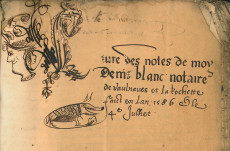 ure des notes de moy
Denis blanc notaire
de vaulnaues et la Rochette
faict en Lan 1686 & le
4e Juillet